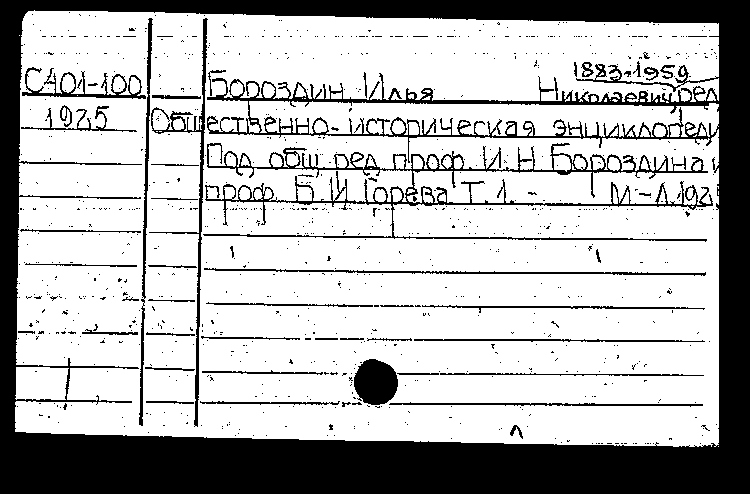 1883-1959
СА01-100 Бороздин, Илья Николаевич, ред
1925 Общественно-историческая энциклопеди
Под общ ред проф. И.Н Бороздина и
проф. Б.И Горева Т.1. - М-Л.192